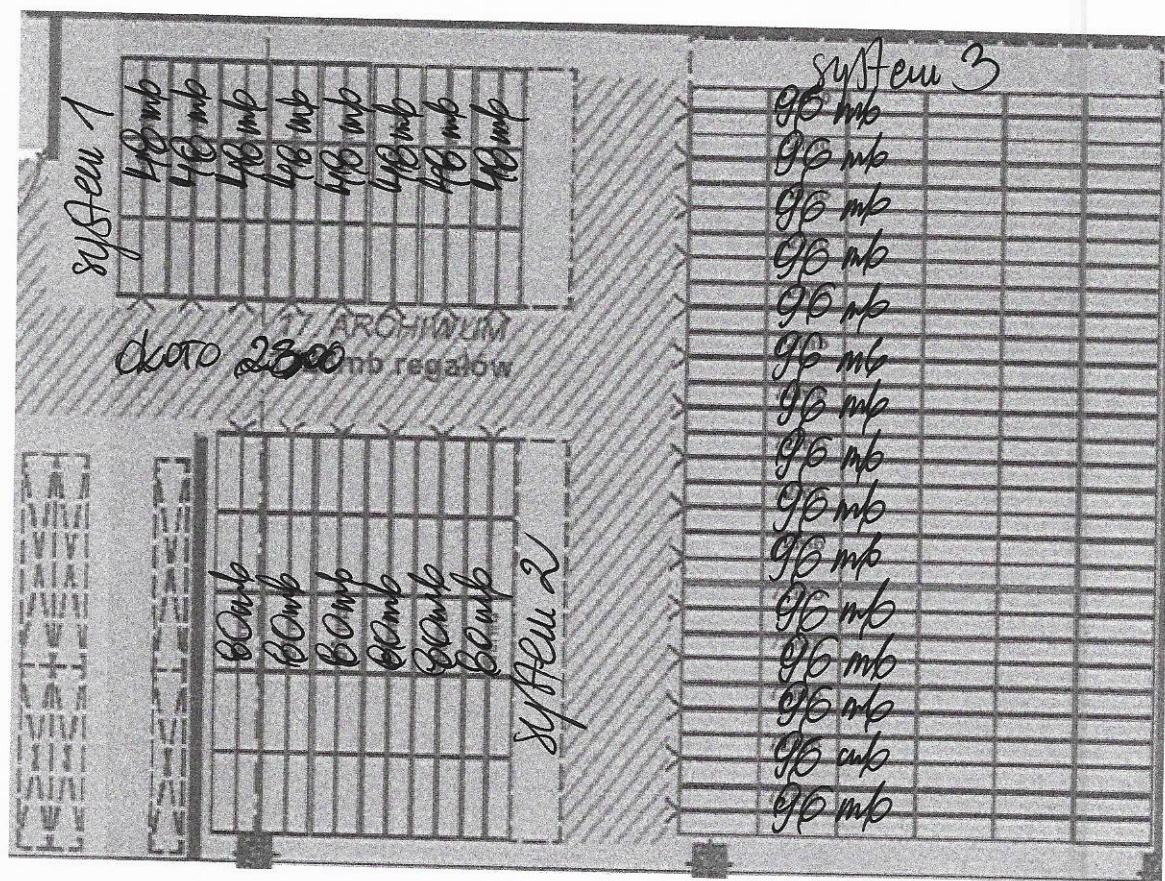 system 1
48 mb
48 mb
48 mb
48 mb
48 mb
48 mb
48 mb
48 mb
17. ARCHIWUM
około 2300 mb regałów
80mb
80mb
80mb
80mb
80mb
80mb
system 2
system 3
96 mb
96 mb
96 mb
96 mb
96 mb
96 mb
96 mb
96 mb
96 mb
96 mb
96 mb
96 mb
96 mb
96 mb
96 mb